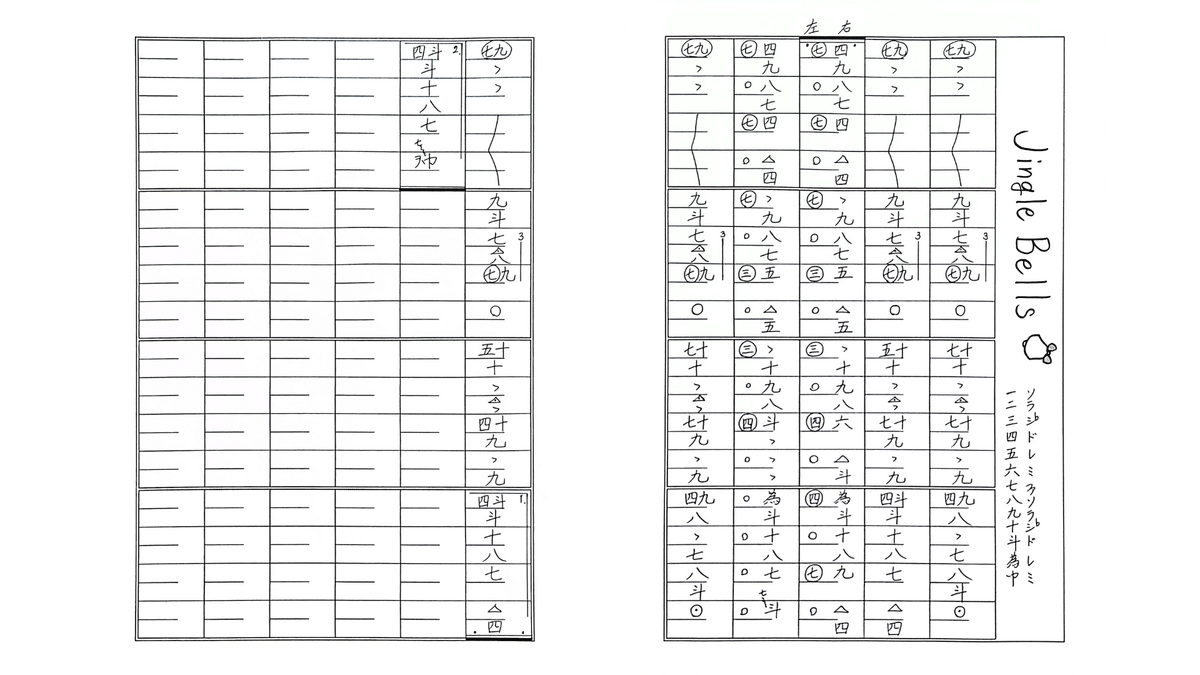 Jingle Bells
一 ソ
二 ラ
三 シ♭
四 ド
五 レ
六 ミ
七 ファ
八 ソ
九 ラ
十 シ♭
斗 ド
為 レ
巾 ミ
左 右
㊆九 ゝ ゝ 九 斗 七 △ 八 3 ㊆九 ○ 七十 十 ゝ △ ゝ 七十 九 ゝ 九 四九 八 ゝ 七 八 斗 ⊙
㊆九 ゝ ゝ 九 斗 七 △ 八 3 ㊆九 ○ 五十 十 ゝ △ ゝ 七十 九 ゝ 九 四斗 斗 十 八 七 △ 四
㊆四 九 ○八 七 ㊆四 ○△ 四 ㊆ゝ 九 ○八 七 ㊂五 ○△ 五 ㊂ゝ 十 ○九 八 ㊃六 ○△ 斗 ㊃為 斗 ○十 八 ㊆九 ○△ 四
㊆四 九 ○八 七 ㊆四 ○△ 四 ㊆ゝ 九 ○八 七 ㊂五 ○△ 五 ㊂ゝ 十 ○九 八 ㊃斗 ゝ ○ゝ ゝ ○為 斗 ○十 八 ○七 七 ○斗
㊆九 ゝ ゝ 九 斗 七 △ 八 3 ㊆九 ○ 七十 十 ゝ △ ゝ 七十 九 ゝ 九 四九 八 ゝ 七 八 斗 ⊙
㊆九 ゝ ゝ 九 斗 七 △ 八 3 ㊆九 ○ 五十 十 ゝ △ ゝ 四十 九 ゝ 九 四斗 1. 斗 十 八 七 △ 四
四斗 2. 斗 十 八 七 七